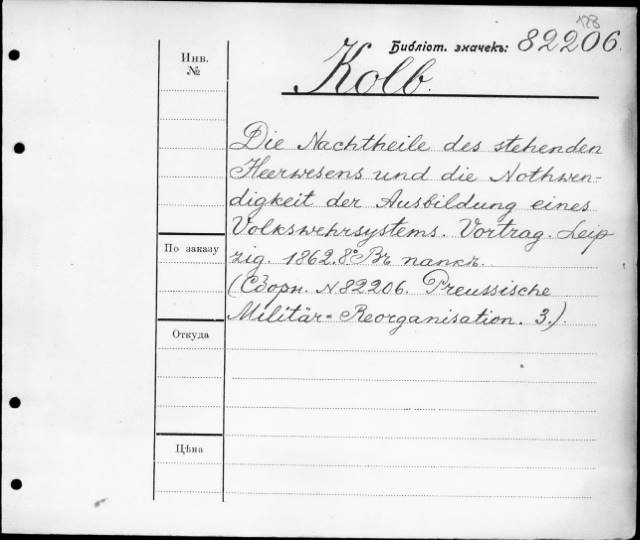 128
Библіот. значекъ: 82206.
Инв.
№
Kolb.
Die Nachtheile des stehenden
Heerwesens und die Nothwen-
digkeit der Ausbildung eines
Volkswehrsystems. Vortrag. Leip
zig. 1862. 8° Въ папкѣ.
(Сборн. N 82206. Preussische
Militär-Reorganisation. 3.)
По заказу
Откуда
Цѣна